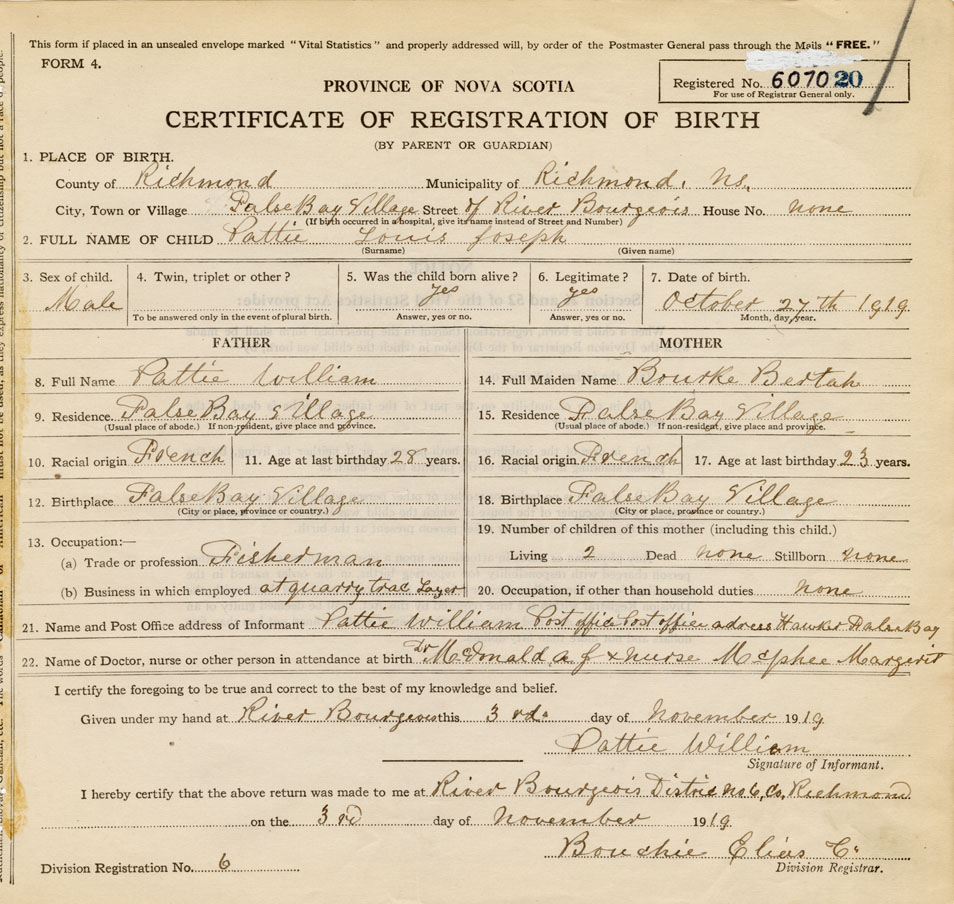 This form if placed in an unsealed envelope marked "Vital Statistics" and properly addressed will, by order of the Postmaster General pass through the Mails "FREE."
FORM 4.
Registered No. 607020
For use of Registrar General only.
PROVINCE OF NOVA SCOTIA
CERTIFICATE OF REGISTRATION OF BIRTH
(BY PARENT OR GUARDIAN)
1. PLACE OF BIRTH.
County of Richmond Municipality of Richmond, Ns,
City, Town or Village False Bay Village Street of River Bourgeois House No. none
(If birth occurred in a hospital, give its name instead of Street and Number)
2. FULL NAME OF CHILD Pattie Louis Joseph
(Surname) (Given name)
3. Sex of child. 4. Twin, triplet or other? 5. Was the child born alive? 6. Legitimate? 7. Date of birth.
Male yes yes October 27th 1919.
To be answered only in the event of plural birth. Answer, yes or no. Answer, yes or no. Month, day, year.
FATHER MOTHER
8. Full Name Pattie William 14. Full Maiden Name Bourke Bertah
9. Residence. False Bay Village 15. Residence False Bay Village
(Usual place of abode.) If non-resident, give place and province. (Usual place of abode.) If non-resident, give place and province.
10. Racial origin French 11. Age at last birthday 28 years. 16. Racial origin French 17. Age at last birthday 23 years.
12. Birthplace False Bay Village 18. Birthplace False Bay Village
(City or place, province or country.) (City or place, province or country.)
13. Occupation:— 19. Number of children of this mother (including this child.)
(a) Trade or profession Fisherman Living 2 Dead none Stillborn none
(b) Business in which employed at quarry trac Layer 20. Occupation, if other than household duties none
21. Name and Post Office address of Informant Pattie William Post office Post office adress Hawker False Bay
22. Name of Doctor, nurse or other person in attendance at birth Dr McDonald a f & nurse McPhee Margerit
I certify the foregoing to be true and correct to the best of my knowledge and belief.
Given under my hand at River Bourgeois this 3 rd. day of November 1919
Pattie William
Signature of Informant.
I hereby certify that the above return was made to me at River Bourgeois District no 6, Co, Richmond
on the 3 rd day of November 1919.
Bouchie Elias C.
Division Registration No. 6 Division Registrar.